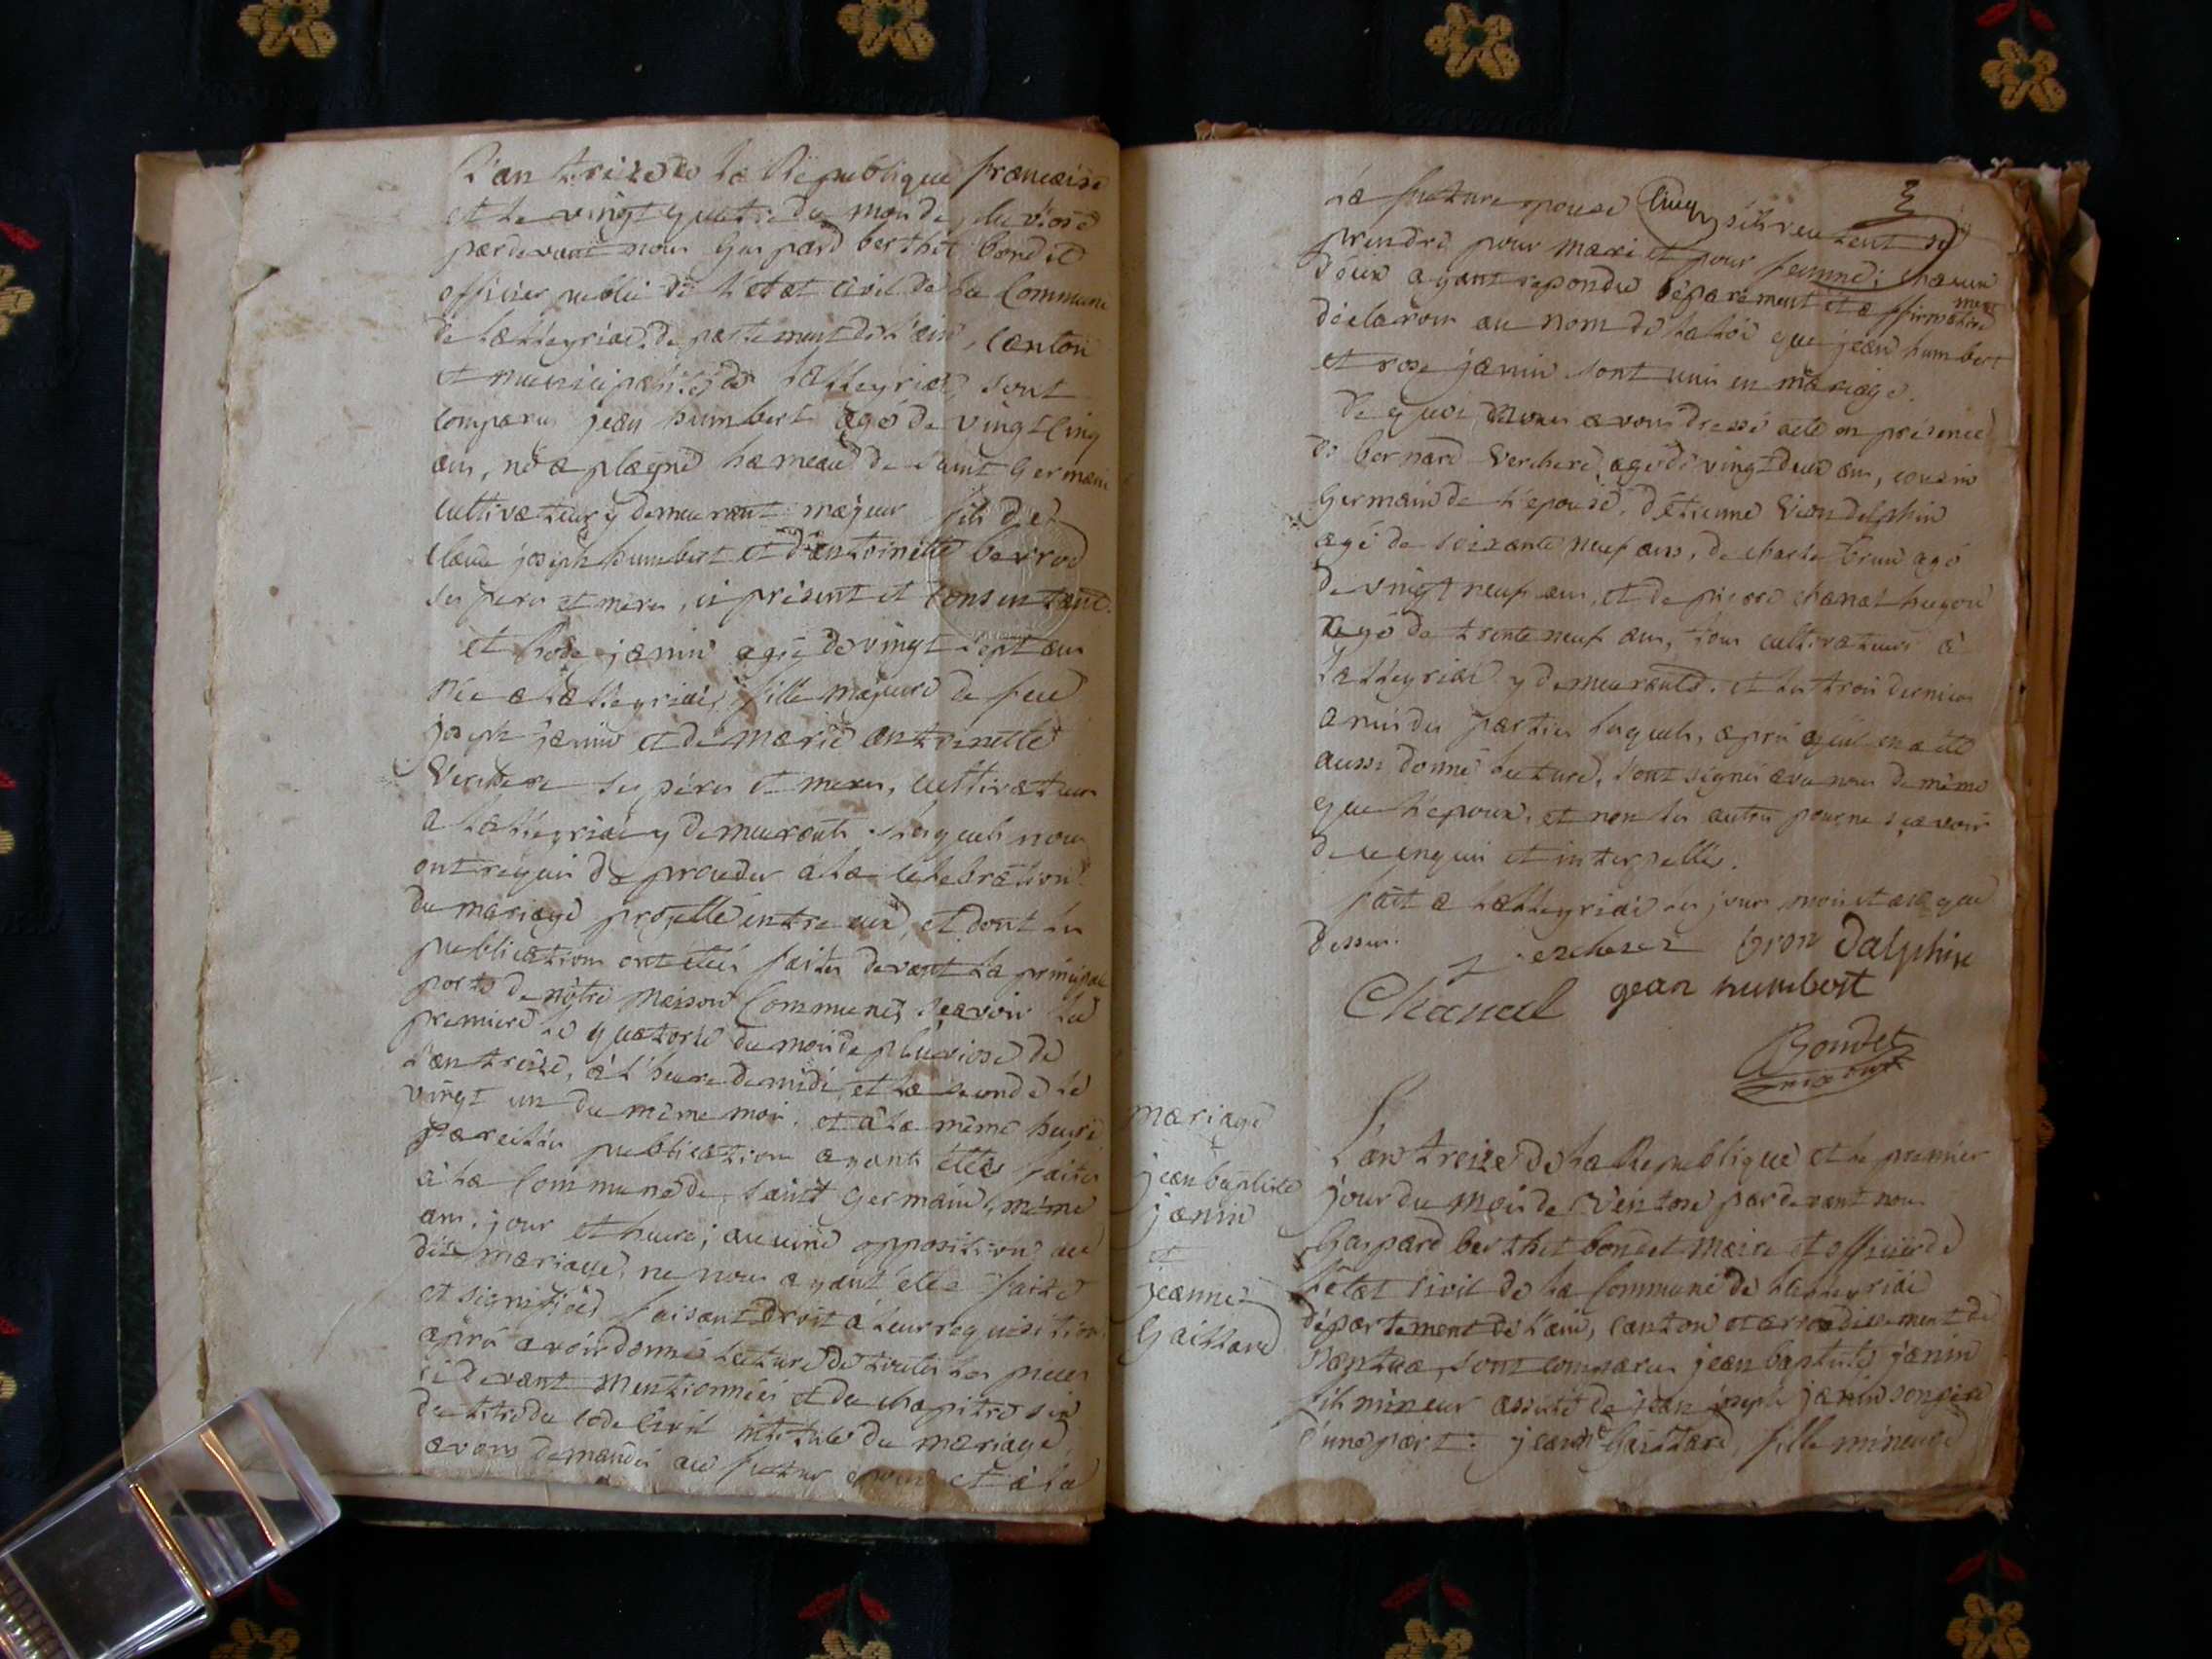 L'an treize de la Republique francaise
et le vingt quatre du mois de pluviose
pardevant nous Gaspard berthet bondet
officier public de l'etat civil de la Commune
de Lalleyriat, departement de l'ain, canton
et municipalité de lalleyriat, sont
comparus jean humbert agé de vingt cinq
ans, né a plagne hameau de saint Germain
cultivateur y demeurant majeur fils de
claude joseph humbert et d'antoinette berrod
ses pere et mere, ci présent et consentant.
et Rose janin agée de vingt sept ans
née a Lalleyriat, fille majeure de feu
joseph janin et de marie antoinette
Verchere ses pères et meres, cultivateurs
a Lalleyriat y demeurants. lesquels nous
ont requis de proceder a la célébration
du mariage projetté entre eux, et dont les
publications ont étées faites devant la principale
porte de nôtre maison Commune, sçavoir la
premiere le quatorze du mois de pluviose de
l'an treize, à l'heure de midi, et la seconde le
vingt un du même mois, et à la même heure
pareilles publications ayants étées faites
à la Commune de saint Germain, même
ans, jour et heure; aucune opposition au
dit mariage, ne nous ayant étée faite
et signifiée, faisant droit à leur requisition
après avoir donné lecture de toutes les pieces
cidevant mentionnées et du chapitre six
du titre du code Civil intitulé du mariage,
avons demandés au futur epoux et à la
La future epouse s'ils veulent se
prendre pour mari et pour femme; chacun
d'eux ayant repondu séparément et affirmative
ment
déclarons au nom de la loi que jean humbert
et rose janin sont unis en mariage.
de quoi avons dressé acte en présence
de bernard Verchere, agé de vingt deux ans, cousin
Germain de l'epouse, d'étienne Vion delphin
agé de soixante neuf ans, de charle brun agé
de vingt neuf ans, et de pierre chanal hugon
agé de trente neuf ans, tous cultivateurs à
Lalleyriat y demeurants. et les trois derniers
amis des parties lesquels, après qu'il en a été
aussi donné lecture, sont signés avec nous de même
que l'epoux, et non les autres pour ne sçavoir
de ce enquis et interpellés.
fait a Lalleyriat les jour, mois et an que
dessus.
verchere vion dalphin
Chanal gean humbert
Bondet
maire
mariage
jean baptiste
janin
et
jeanne
Gaillard
L'an treize de la Republique et le premier
jour du mois de Ventose pardevant nous
Gaspard berthet bondet maire et officier de
l'etat civil de la commune de Lalleyriat
département de l'ain, canton et arrondissement de
Nantua, sont comparus jean baptiste janin
fils mineur assisté de jean joseph janin son père
d'une part: jeanne Gaillard, fille mineure